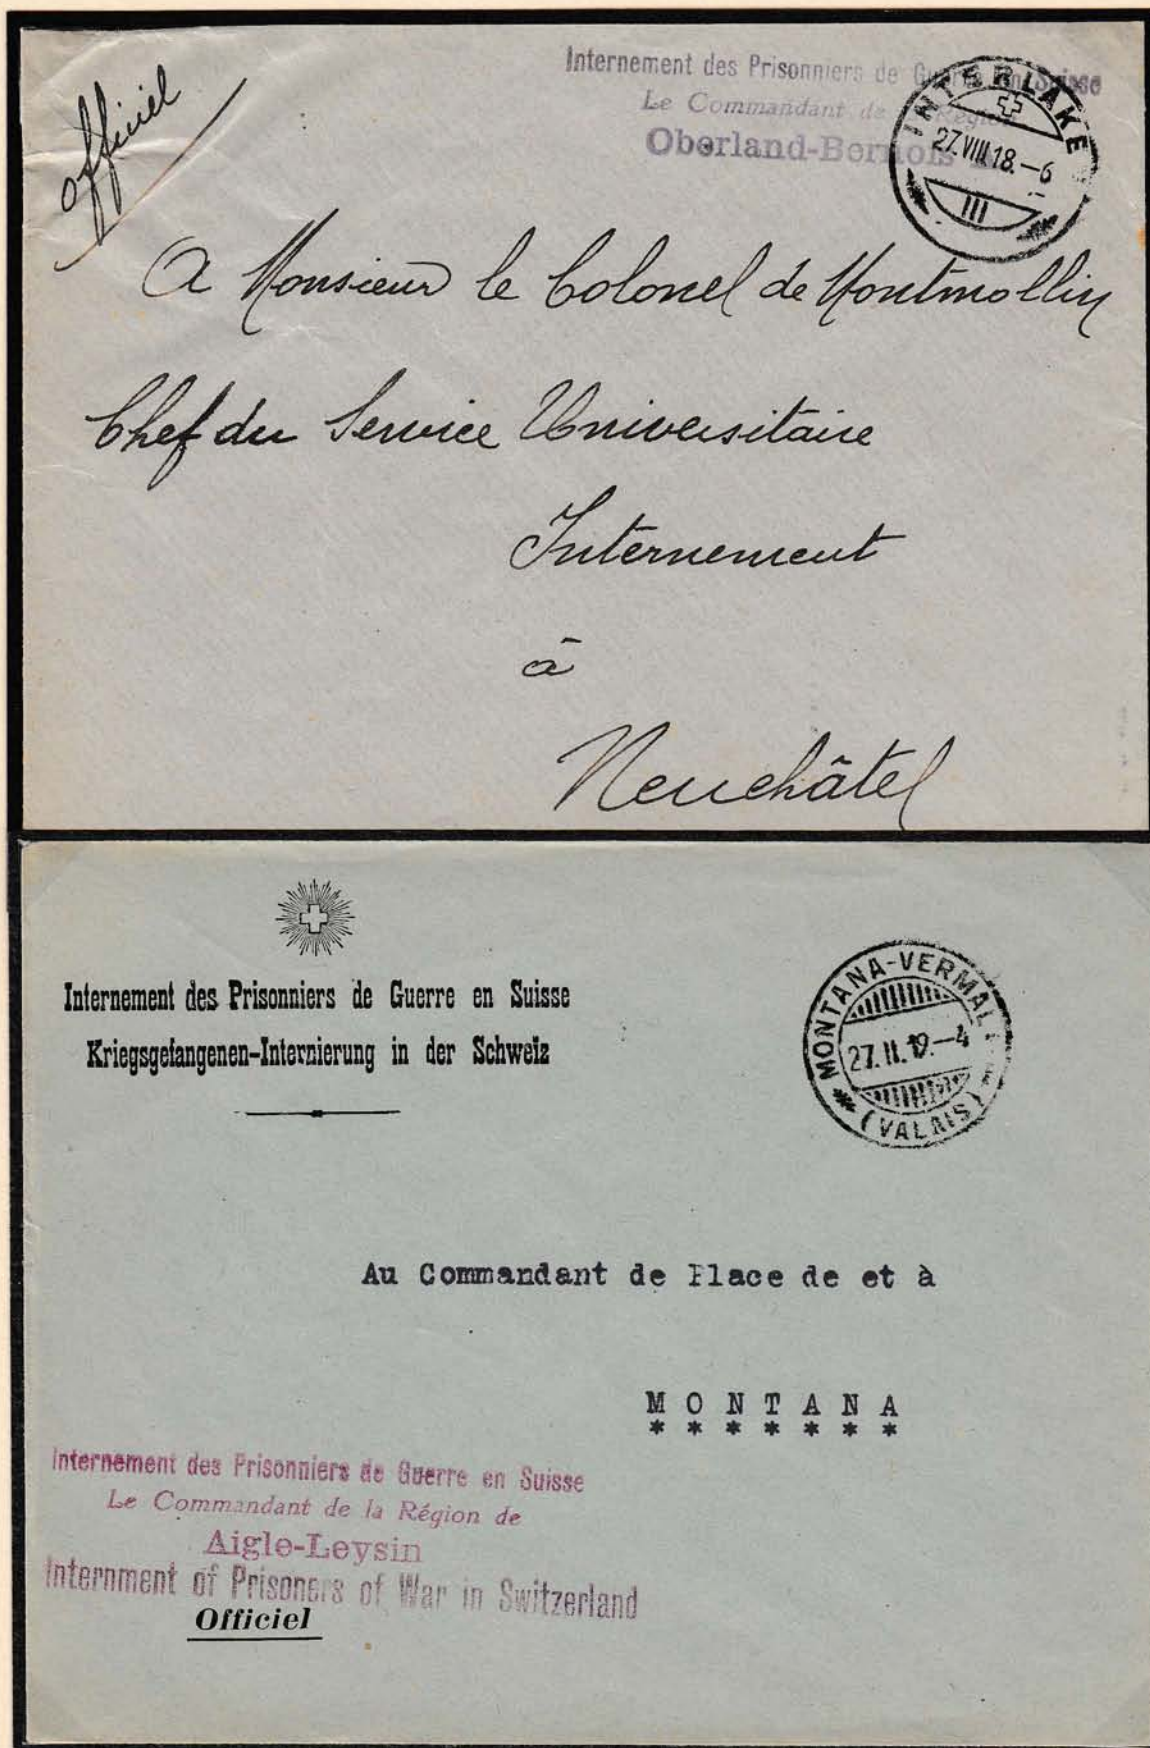 officiel
Internement des Prisonniers de Guerre en Suisse
Le Commandant de la Région
Oberland-Bernois
INTERLAKE
27.VIII.18.–6
III
A Monsieur le Colonel de Montmollin
Chef du Service Universitaire
Internement
à
Neuchâtel
Internement des Prisonniers de Guerre en Suisse
Kriegsgefangenen-Internierung in der Schweiz
MONTANA-VERMAL
27.II.19.–4
(VALAIS)
Au Commandant de Place de et à
MONTANA
*******
Internement des Prisonniers de Guerre en Suisse
Le Commandant de la Région de
Aigle-Leysin
Internment of Prisoners of War in Switzerland
Officiel